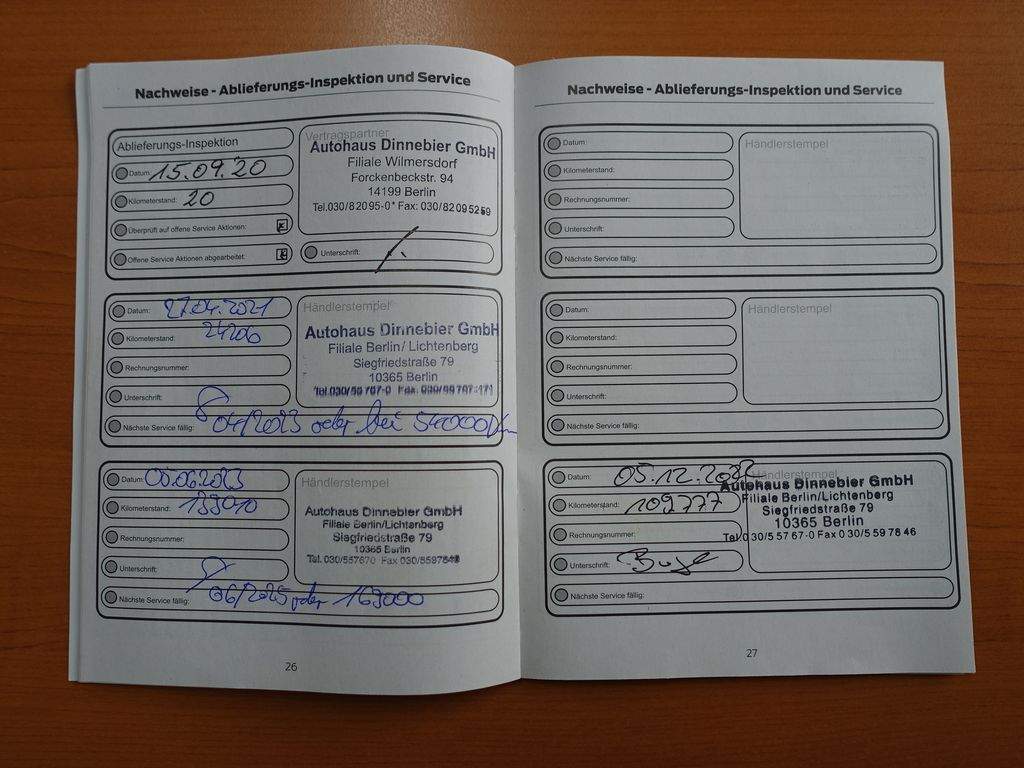 Nachweise - Ablieferungs-Inspektion und Service
Ablieferungs-Inspektion
Datum: 15.09.20
Kilometerstand: 20
Überprüft auf offene Service Aktionen:
Offene Service Aktionen abgearbeitet:
Vertragspartner
Autohaus Dinnebier GmbH
Filiale Wilmersdorf
Forckenbeckstr. 94
14199 Berlin
Tel.030/82095-0* Fax: 030/82095259
Unterschrift:
Datum: 27.04.2021
Kilometerstand: 24206
Rechnungsnummer:
Unterschrift:
Nächste Service fällig: 04/2023 oder bei 54000km
Händlerstempel
Autohaus Dinnebier GmbH
Filiale Berlin/Lichtenberg
Siegfriedstraße 79
10365 Berlin
Tel.030/55 767-0 Fax: 030/55 767-171
Datum: 05.06.2023
Kilometerstand: 133910
Rechnungsnummer:
Unterschrift:
Nächste Service fällig: 06/2025 oder 163000
Händlerstempel
Autohaus Dinnebier GmbH
Filiale Berlin/Lichtenberg
Siegfriedstraße 79
10365 Berlin
Tel. 030/557670 Fax 030/5597846
26
Nachweise - Ablieferungs-Inspektion und Service
Datum:
Kilometerstand:
Rechnungsnummer:
Unterschrift:
Nächste Service fällig:
Händlerstempel
Datum:
Kilometerstand:
Rechnungsnummer:
Unterschrift:
Nächste Service fällig:
Händlerstempel
Datum: 05.12.2022
Kilometerstand: 109777
Rechnungsnummer:
Unterschrift:
Nächste Service fällig:
Händlerstempel
Autohaus Dinnebier GmbH
Filiale Berlin/Lichtenberg
Siegfriedstraße 79
10365 Berlin
Tel.030/5 57 67-0 Fax 0 30/5 59 78 46
27